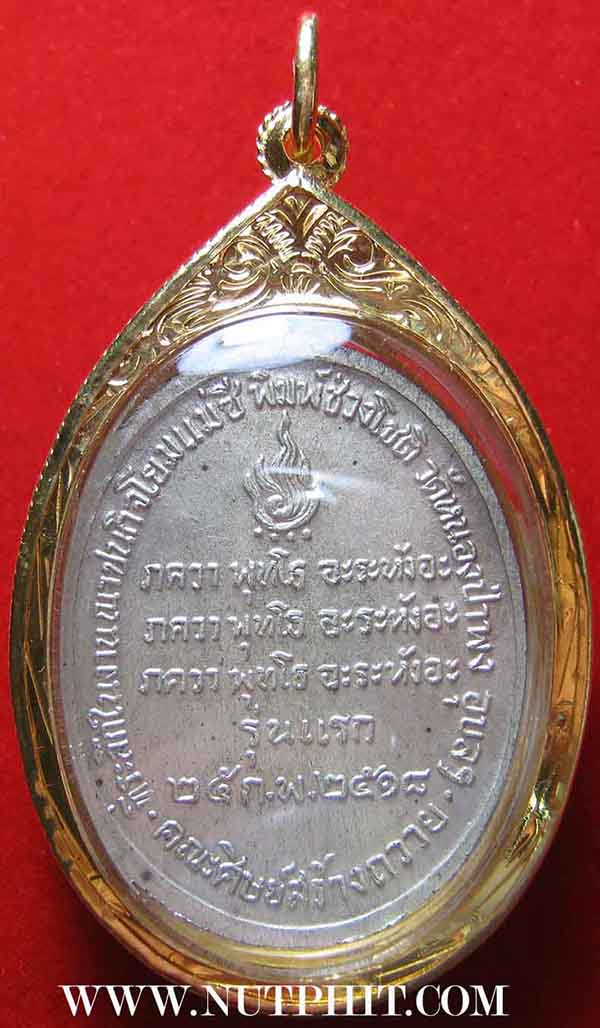 ที่ระลึกในงานฌาปนกิจโยมแม่ชี พิมพ์ช่วงโชติ วัดหนองป่าพง อุบลฯ
ภควา พุทโธ อะระหังอะ
ภควา พุทโธ อะระหังอะ
ภควา พุทโธ อะระหังอะ
รุ่นแรก
๒๕ก.พ.๒๕๑๘
คณะศิษย์สร้างถวาย
WWW.NUTPHIT.COM